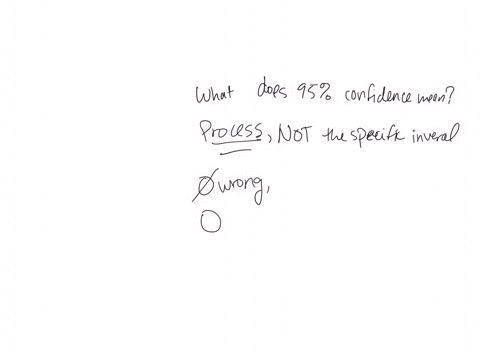 What does 95% confidence mean?
Process, NOT the specific inveral
Ø wrong,
O